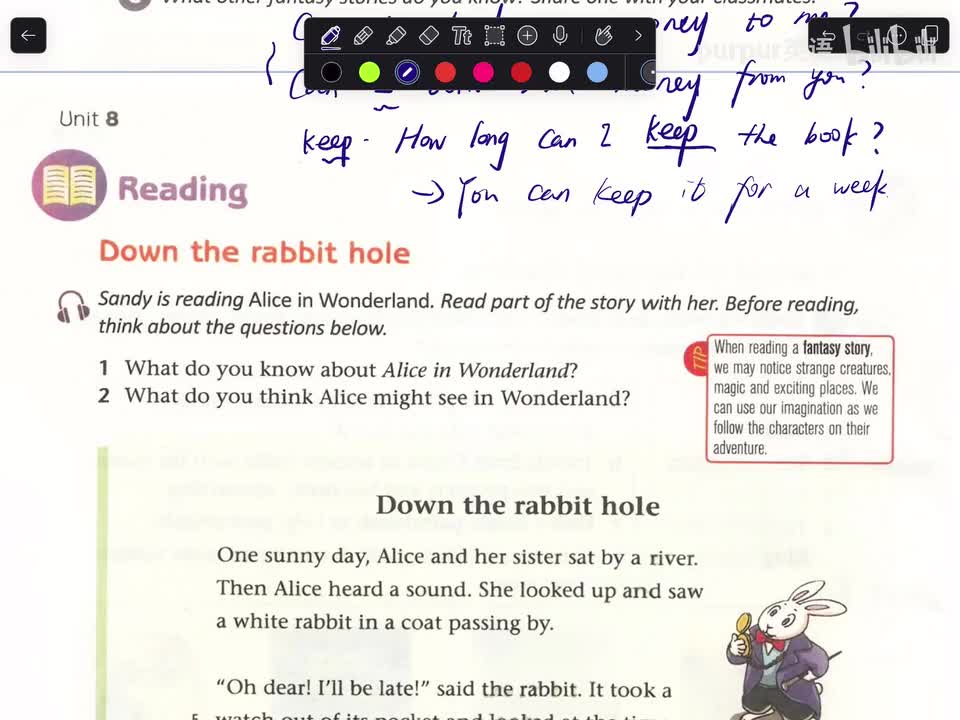 What other fantasy stories do you know? Share one with your classmates.
money to me?
purpur英语 bilibili
money from you?
Unit 8
keep. How long can I keep the book?
→ You can keep it for a week
Reading
Down the rabbit hole
Sandy is reading Alice in Wonderland. Read part of the story with her. Before reading,
think about the questions below.
1 What do you know about Alice in Wonderland?
2 What do you think Alice might see in Wonderland?
TIP
When reading a fantasy story,
we may notice strange creatures,
magic and exciting places. We
can use our imagination as we
follow the characters on their
adventure.
Down the rabbit hole
One sunny day, Alice and her sister sat by a river.
Then Alice heard a sound. She looked up and saw
a white rabbit in a coat passing by.
“Oh dear! I’ll be late!” said the rabbit. It took a
5 watch out of its pocket and looked at the time.